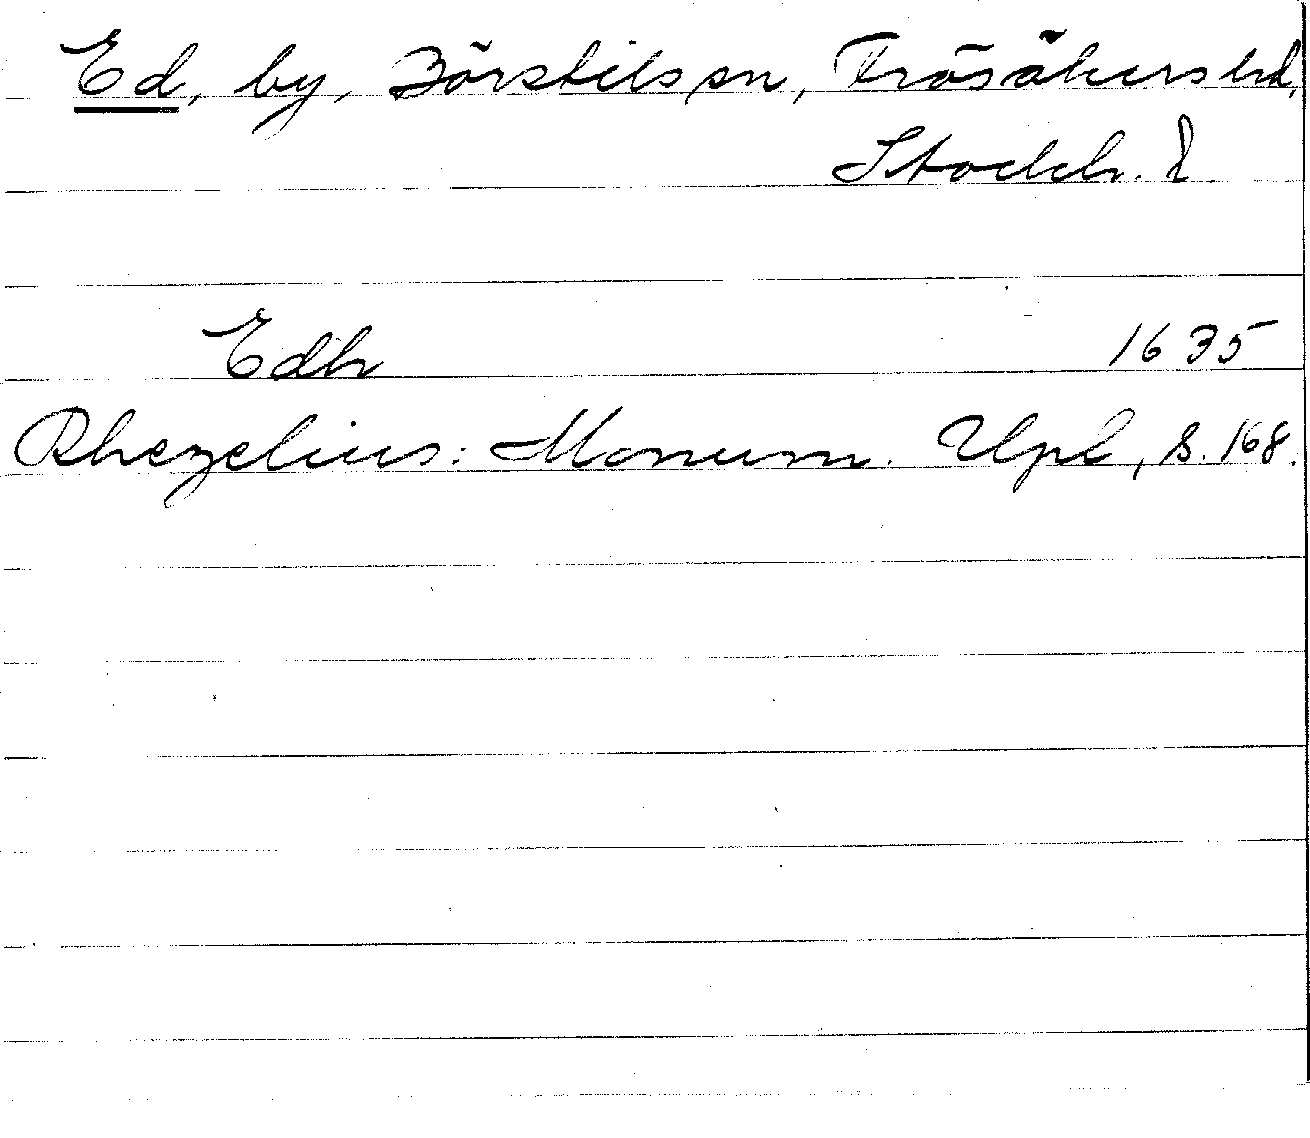 Ed, by, Börstils sn, Frösåkers hd,
Stockh. l.
Edh 1635
Rhezelius: Monum. Upl, s. 168.